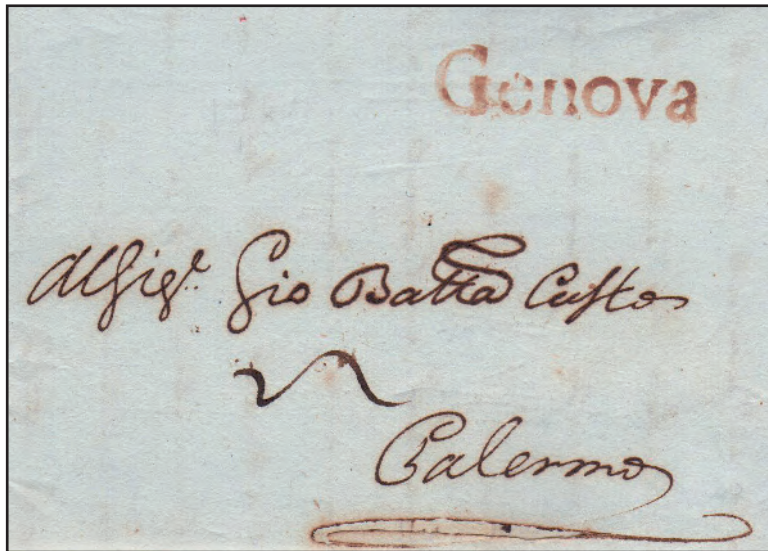 Genova
Al Sig.r Gio Batta Custo
Palermo